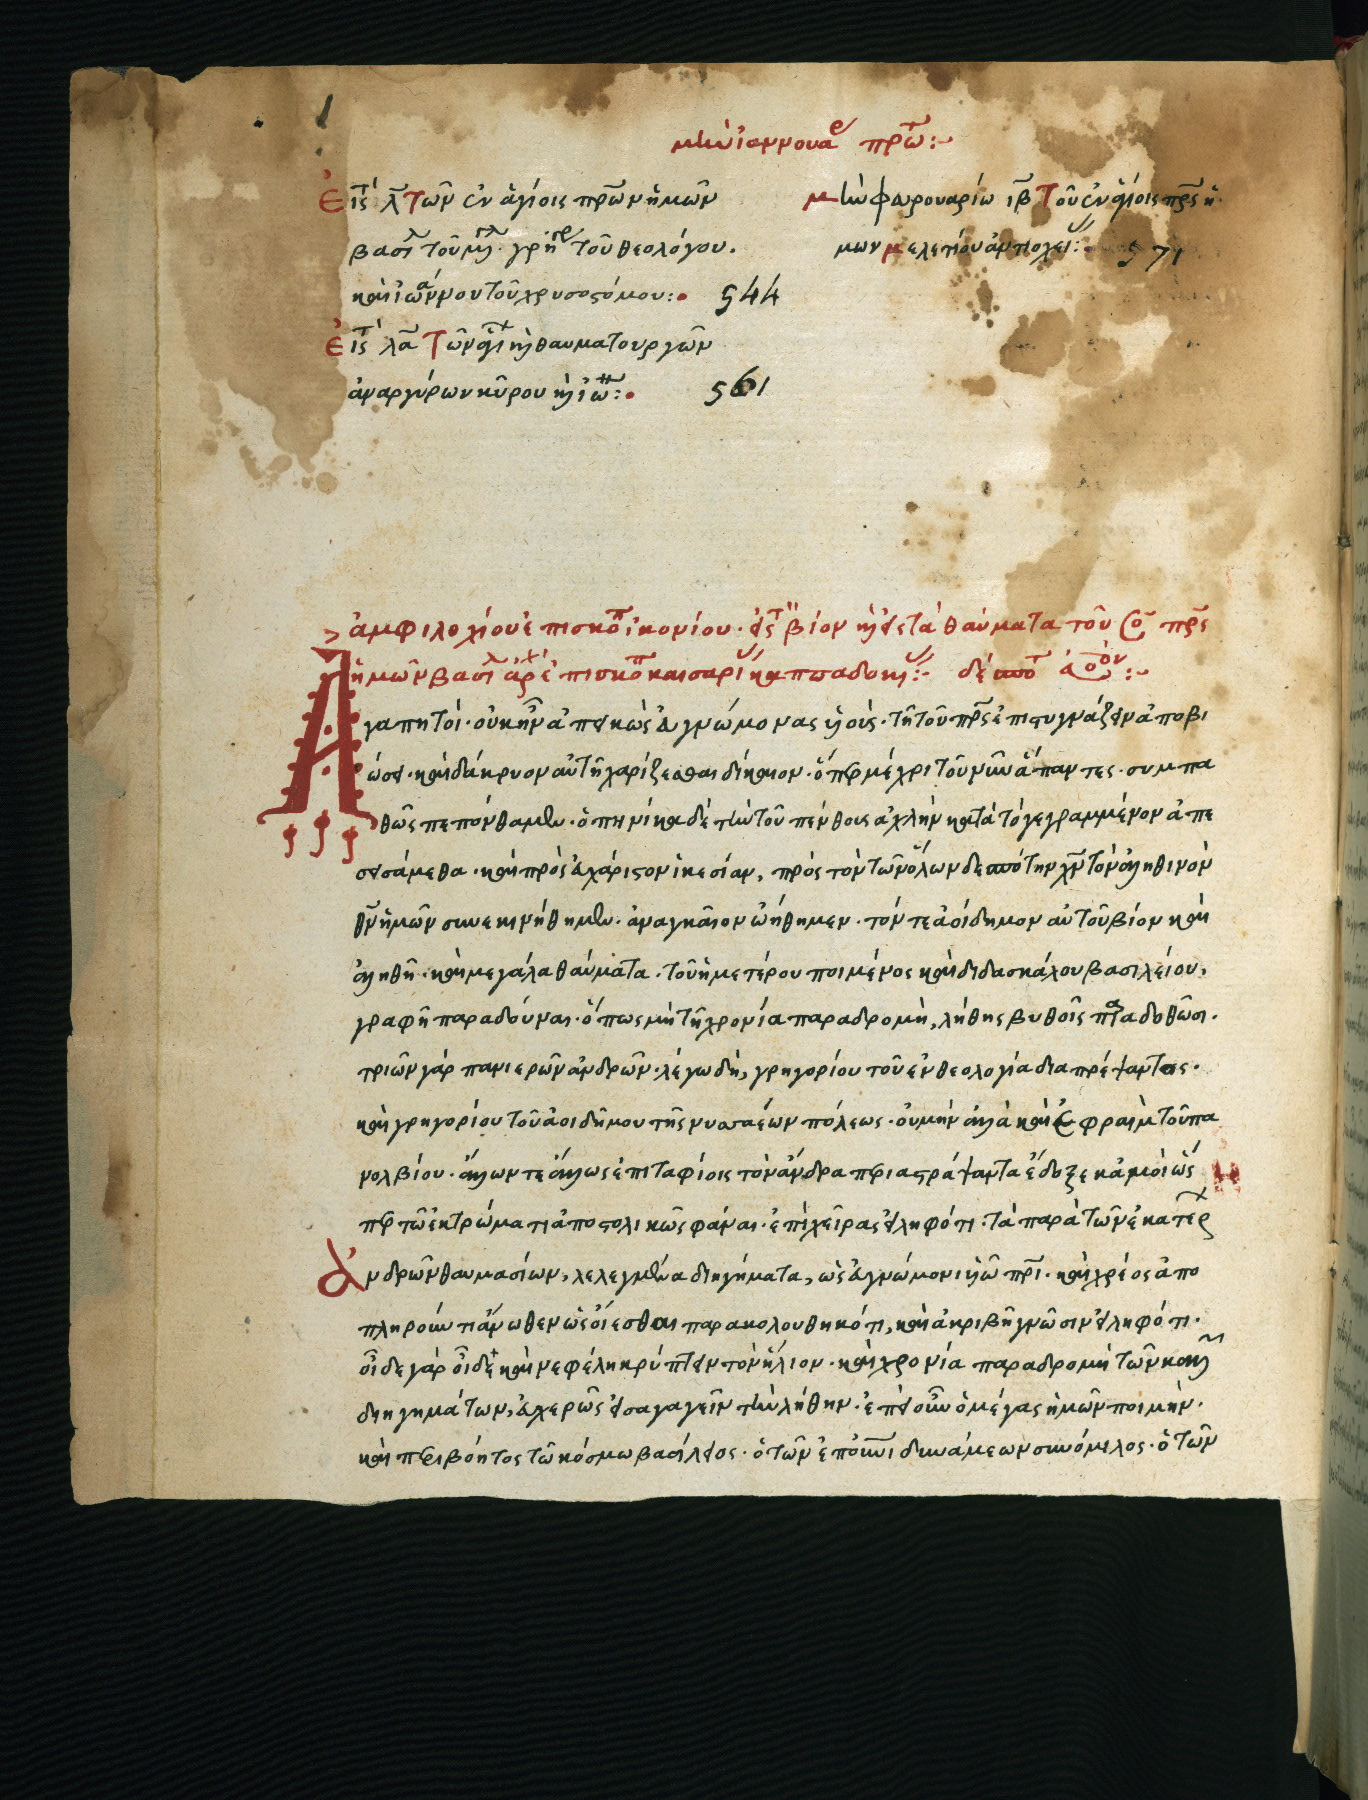 μὴν ἰαννουα πρω:
Εἰς τ λ Τῶν ἐν ἁγίοις πρων ἡμῶν
βασι τοῦ μγ. γρη τοῦ θεολόγου.
καὶ ἰωάννου τοῦ χρυσοστόμου:
544
Εἰς τ λα Τῶν ἁγι καὶ θαυματουργῶν
ἀναργύρων κῦρου καὶ ἰω:
561
μὴν φευρουαρίω ιβ Τοῦ ἐν ἁγίοις πρς ἡ
μων μελετίου ἀντιοχει:
571
ἀμφιλοχίου ἐπισκο ἰκονίου. εἰς τ βίον καὶ εἰς τὰ θαύματα τοῦ πρς
ἡμῶν βασι ἀρχ ἐπισκο καισαρι καππαδοκι:
Ἀγαπητοί. οὐκ ἦν ἀπεικὼς εὐγνώμονας υἱούς. τῆ τοῦ πρς ἐπιστυγνάζειν ἀποβι
ώσει. καὶ δάκρυον αὐτῆ χαρίζεσθαι δίκαιον. ὅπερ μέχρι τοῦ νῦν ἅπαντες. συμπα
θῶς πεπόνθαμεν. ὁπηνίκα δὲ τὴν τοῦ πένθους ἀχλὴν κατὰ τὸ γεγραμμένον ἀπε
σεισάμεθα. καὶ πρὸς εὐχάριστον ἱκεσίαν, πρὸς τὸν τῶν ὅλων δεσπότην χν τὸν ἀληθινὸν
θν ἡμῶν συνεκινήθημεν. ἀναγκαῖον ὠήθημεν. τόν τε ἀοίδημον αὐτοῦ βίον καὶ
ἀληθῆ. καὶ μεγάλα θαύματα. τοῦ ἡμετέρου ποιμένος καὶ διδασκάλου βασιλείου,
γραφῆ παραδοῦναι. ὅπως μὴ τῆ χρονία παραδρομὴ, λήθης βυθοῖς παραδοθῶσι.
τριῶν γὰρ πανιερῶν ἀνδρῶν. λέγω δὴ, γρηγορίου τοῦ ἐν θεολογία διαπρέψαντος.
καὶ γρηγορίου τοῦ ἀοιδήμου τῆς νυσσαέων πόλεως. οὐ μὴν ἀλλὰ καὶ ἐφραὶμ τοῦ πα
νολβίου. ἄλλων τε ἄλλως ἐπιταφίοις τὸν ἄνδρα περιαστράψαντα ἔδοξε κἀμοὶ ὡς
περ τῶ ἐκτρώματι ἀποστολικῶς φάναι. ἐπὶ χεῖρας εἰληφότι. τὰ παρὰ τῶν ἑκατερ
ἀνδρῶν θαυμασίων, λελεγμένα διηγήματα, ὡς εὐγνώμονι υἱῶ πρι. καὶ χρέος ἀπο
πληροῦντι ἄνωθεν ὡς οἴεσθαι παρακολουθηκότι, καὶ ἀκριβῆ γνῶσιν εἰληφότι.
οἶδε γὰρ οἶδε καὶ νεφέλη κρύπτειν τὸν ἥλιον. καὶ χρονία παραδρομὴ τῶν καλ
διηγημάτων, εὐχερῶς εἰσαγαγεῖν τὴν λήθην. ἐπεὶ οὖν ὁ μέγας ἡμῶν ποιμὴν.
καὶ περιβόητος τῶ κόσμω βασίλειος. ὁ τῶν ἐπουνι δυνάμεων συνόμιλος. ὁ τῶν